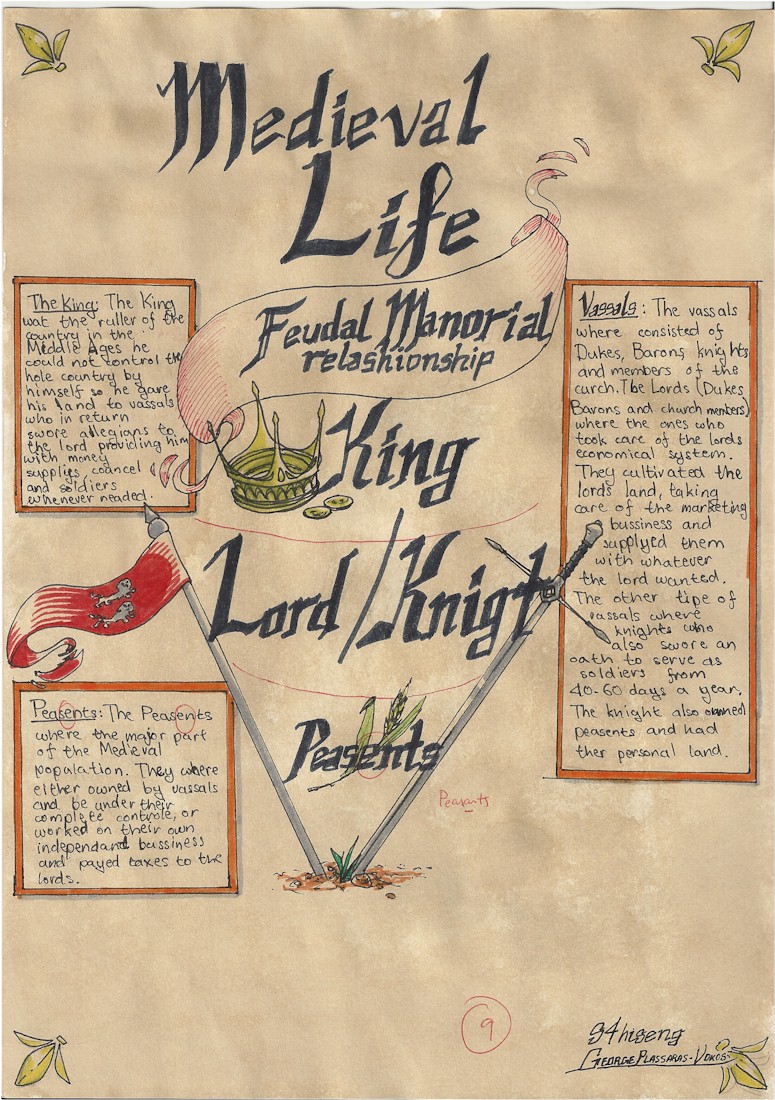 Medieval
Life
Feudal Manorial
relashionship
The King: The King
wat the ruller of the
country in the
Middle Ages he
could not control the
hole country by
himself so he gave
his land to vassals
who in return
swore allegians to
the lord providing him
with money
supplies, councel
and soldiers
whenever neaded.
King
Lord/Knigt
Peasents
Peasants
Peasents: The Peasents
where the major part
of the Medieval
population. They where
either owned by vassals
and be under their
complete controle, or
worked on their own
independand bussiness
and payed taxes to the
lords.
Vassals: The vassals
where consisted of
Dukes, Barons, knights
and members of the
curch. The Lords (Dukes
Barons and church members)
where the ones who
took care of the lords
economical system.
They cultivated the
lords land, taking
care of the marketing
bussiness and
supplyed them
with whatever
the lord wanted.
The other tipe of
vassals where
knights who
also swore an
oath to serve as
soldiers from
40-60 days a year.
The knight also owned
peasents and had
ther personal land.
9
g4hiseng
GEORGE PLASSARAS-VOKOS